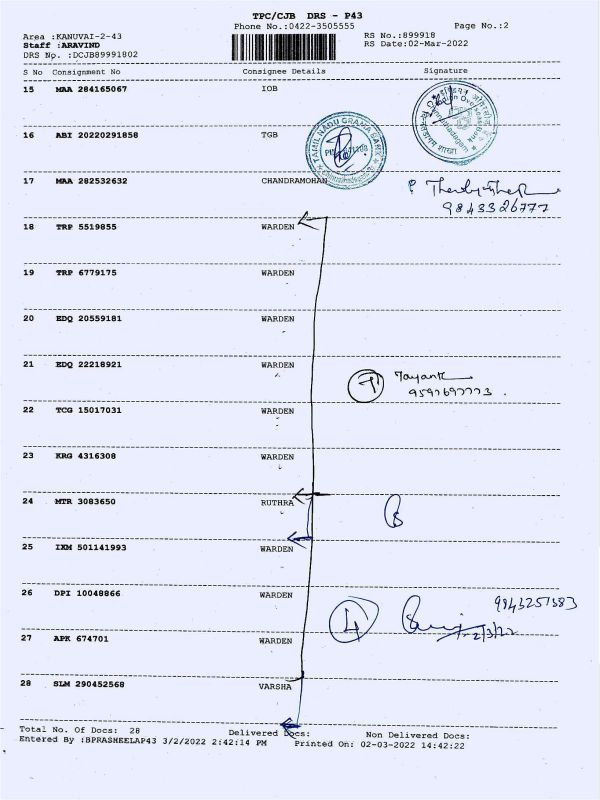 TPC/CJB DRS - P43
Phone No.:0422-3505555 Page No.:2
Area :KANUVAI-2-43 RS No.:899918
Staff :ARAVIND RS Date:02-Mar-2022
DRS No. :DCJB89991802
S No Consignment No Consignee Details Signature
15 MAA 284165067 IOB
16 ABI 20220291858 TGB
TAMIL NADU GRAMA BANK
17 MAA 282532632 CHANDRAMOHAN
9843326777
18 TRP 5519855 WARDEN
19 TRP 6779175 WARDEN
20 EDQ 20559181 WARDEN
21 EDQ 22218921 WARDEN
22 TCG 15017031 WARDEN
23 KRG 4316308 WARDEN
24 MTR 3083650 RUTHRA
25 IXM 501141993 WARDEN
26 DPI 10048866 WARDEN
4 9843251383
2/3/22
27 APK 674701 WARDEN
28 SLM 290452568 VARSHA
Total No. Of Docs: 28 Delivered Docs: Non Delivered Docs:
Entered By :BPRASHEELAP43 3/2/2022 2:42:14 PM Printed On: 02-03-2022 14:42:22